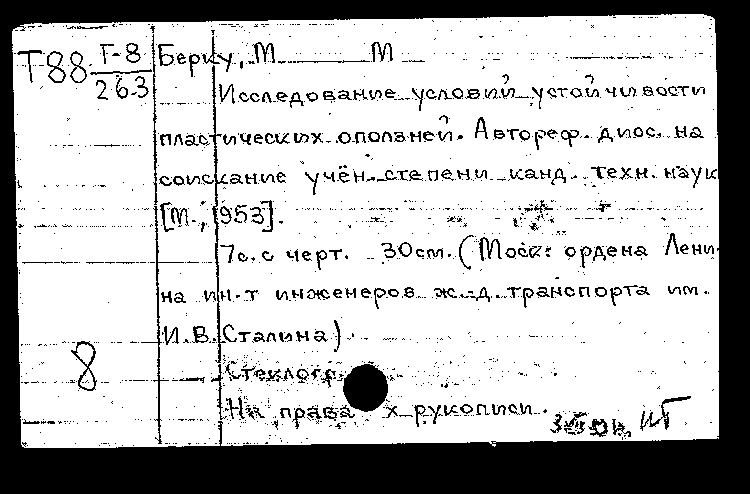 Т88 Г-8
263
Берку, М М
Исследование условий устойчивости
пластических оползней. Автореф. дисс. на
соискание учён. степени канд. техн. наук
[М., 1953].
7с. с черт. 30см. (Моск. ордена Лени-
на ин-т инженеров ж.-д. транспорта им.
И.В. Сталина)
8
Стеклогр.
На права х рукописи.